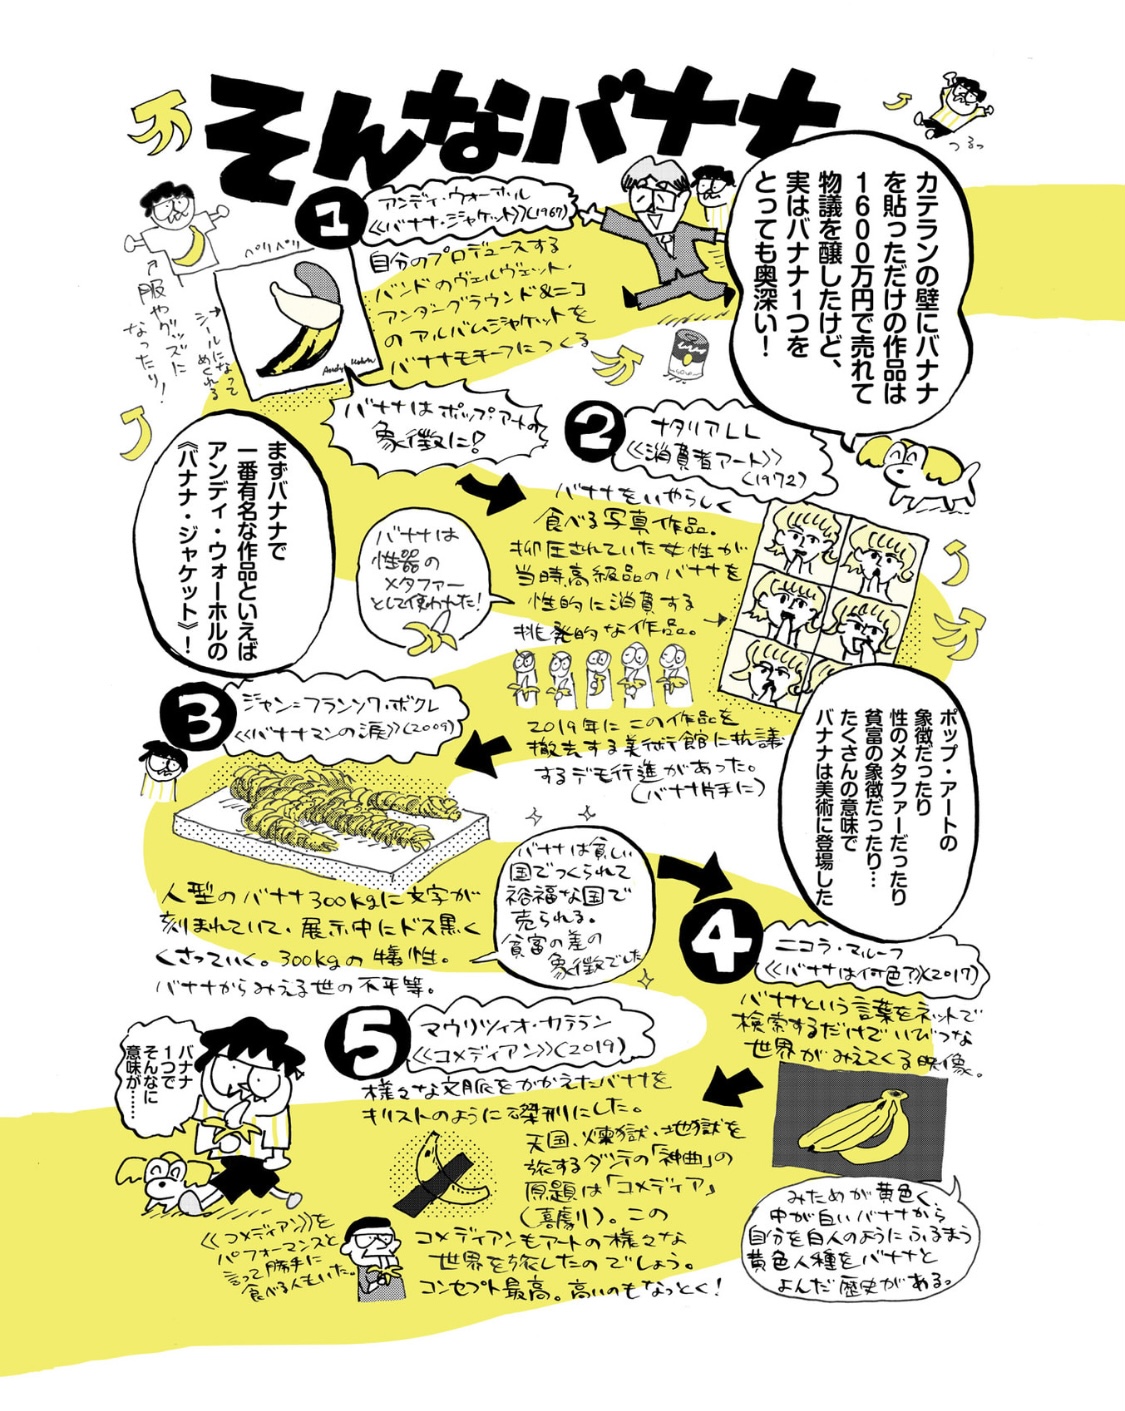 そんなバナナ
つるっ
カテランの壁にバナナ
を貼っただけの作品は
1600万円で売れて
物議を醸したけど、
実はバナナ1つを
とっても奥深い！
1
アンディ・ウォーホル
《バナナ・ジャケット》(1967)
自分のプロデュースする
バンドのヴェルヴェット・
アンダーグラウンド&ニコ
のアルバムジャケットを
バナナモチーフにつくる
ペリペリ
シールになって
めくれる
服やグッズに
なったり！
バナナはポップアートの
象徴に！
まずバナナで
一番有名な作品といえば
アンディ・ウォーホルの
《バナナ・ジャケット》！
2
ナタリアLL
《消費者アート》
(1972)
バナナをいやらしく
食べる写真作品。
抑圧されていた女性が
当時高級品のバナナを
性的に消費する
挑発的な作品。
バナナは
性器の
メタファー
として使われた！
2019年にこの作品を
撤去する美術館に抗議
するデモ行進があった。
(バナナ片手に)
ポップ・アートの
象徴だったり
性のメタファーだったり
貧富の象徴だったり…
たくさんの意味で
バナナは美術に登場した
3
ジャン=フランソワ・ボクレ
《バナナマンの涙》(2009)
人型のバナナ300kgに文字が
刻まれていて、展示中にドス黒く
くさっていく。300kgの犠牲。
バナナからみえる世の不平等。
バナナは貧しい
国でつくられて
裕福な国で
売られる。
貧富の差の
象徴でした
4
ニコラ・マルーフ
《バナナは何色？》(2017)
バナナという言葉をネットで
検索するだけでいびつな
世界がみえてくる映像。
みためが黄色く、
中が白いバナナから
自分を白人のようにふるまう
黄色人種をバナナと
よんだ歴史がある。
5
マウリツィオ・カテラン
《コメディアン》(2019)
様々な文脈をかかえたバナナを
キリストのように磔刑にした。
天国、煉獄、地獄を
旅するダンテの「神曲」の
原題は「コメディア」
(喜劇)。この
コメディアンもアートの様々な
世界を旅したのでしょう。
コンセプト最高。高いのもなっとく！
バナナ
1つで
そんなに
意味が……
《コメディアン》を
パフォーマンスと
言って勝手に
食べる人もいた。